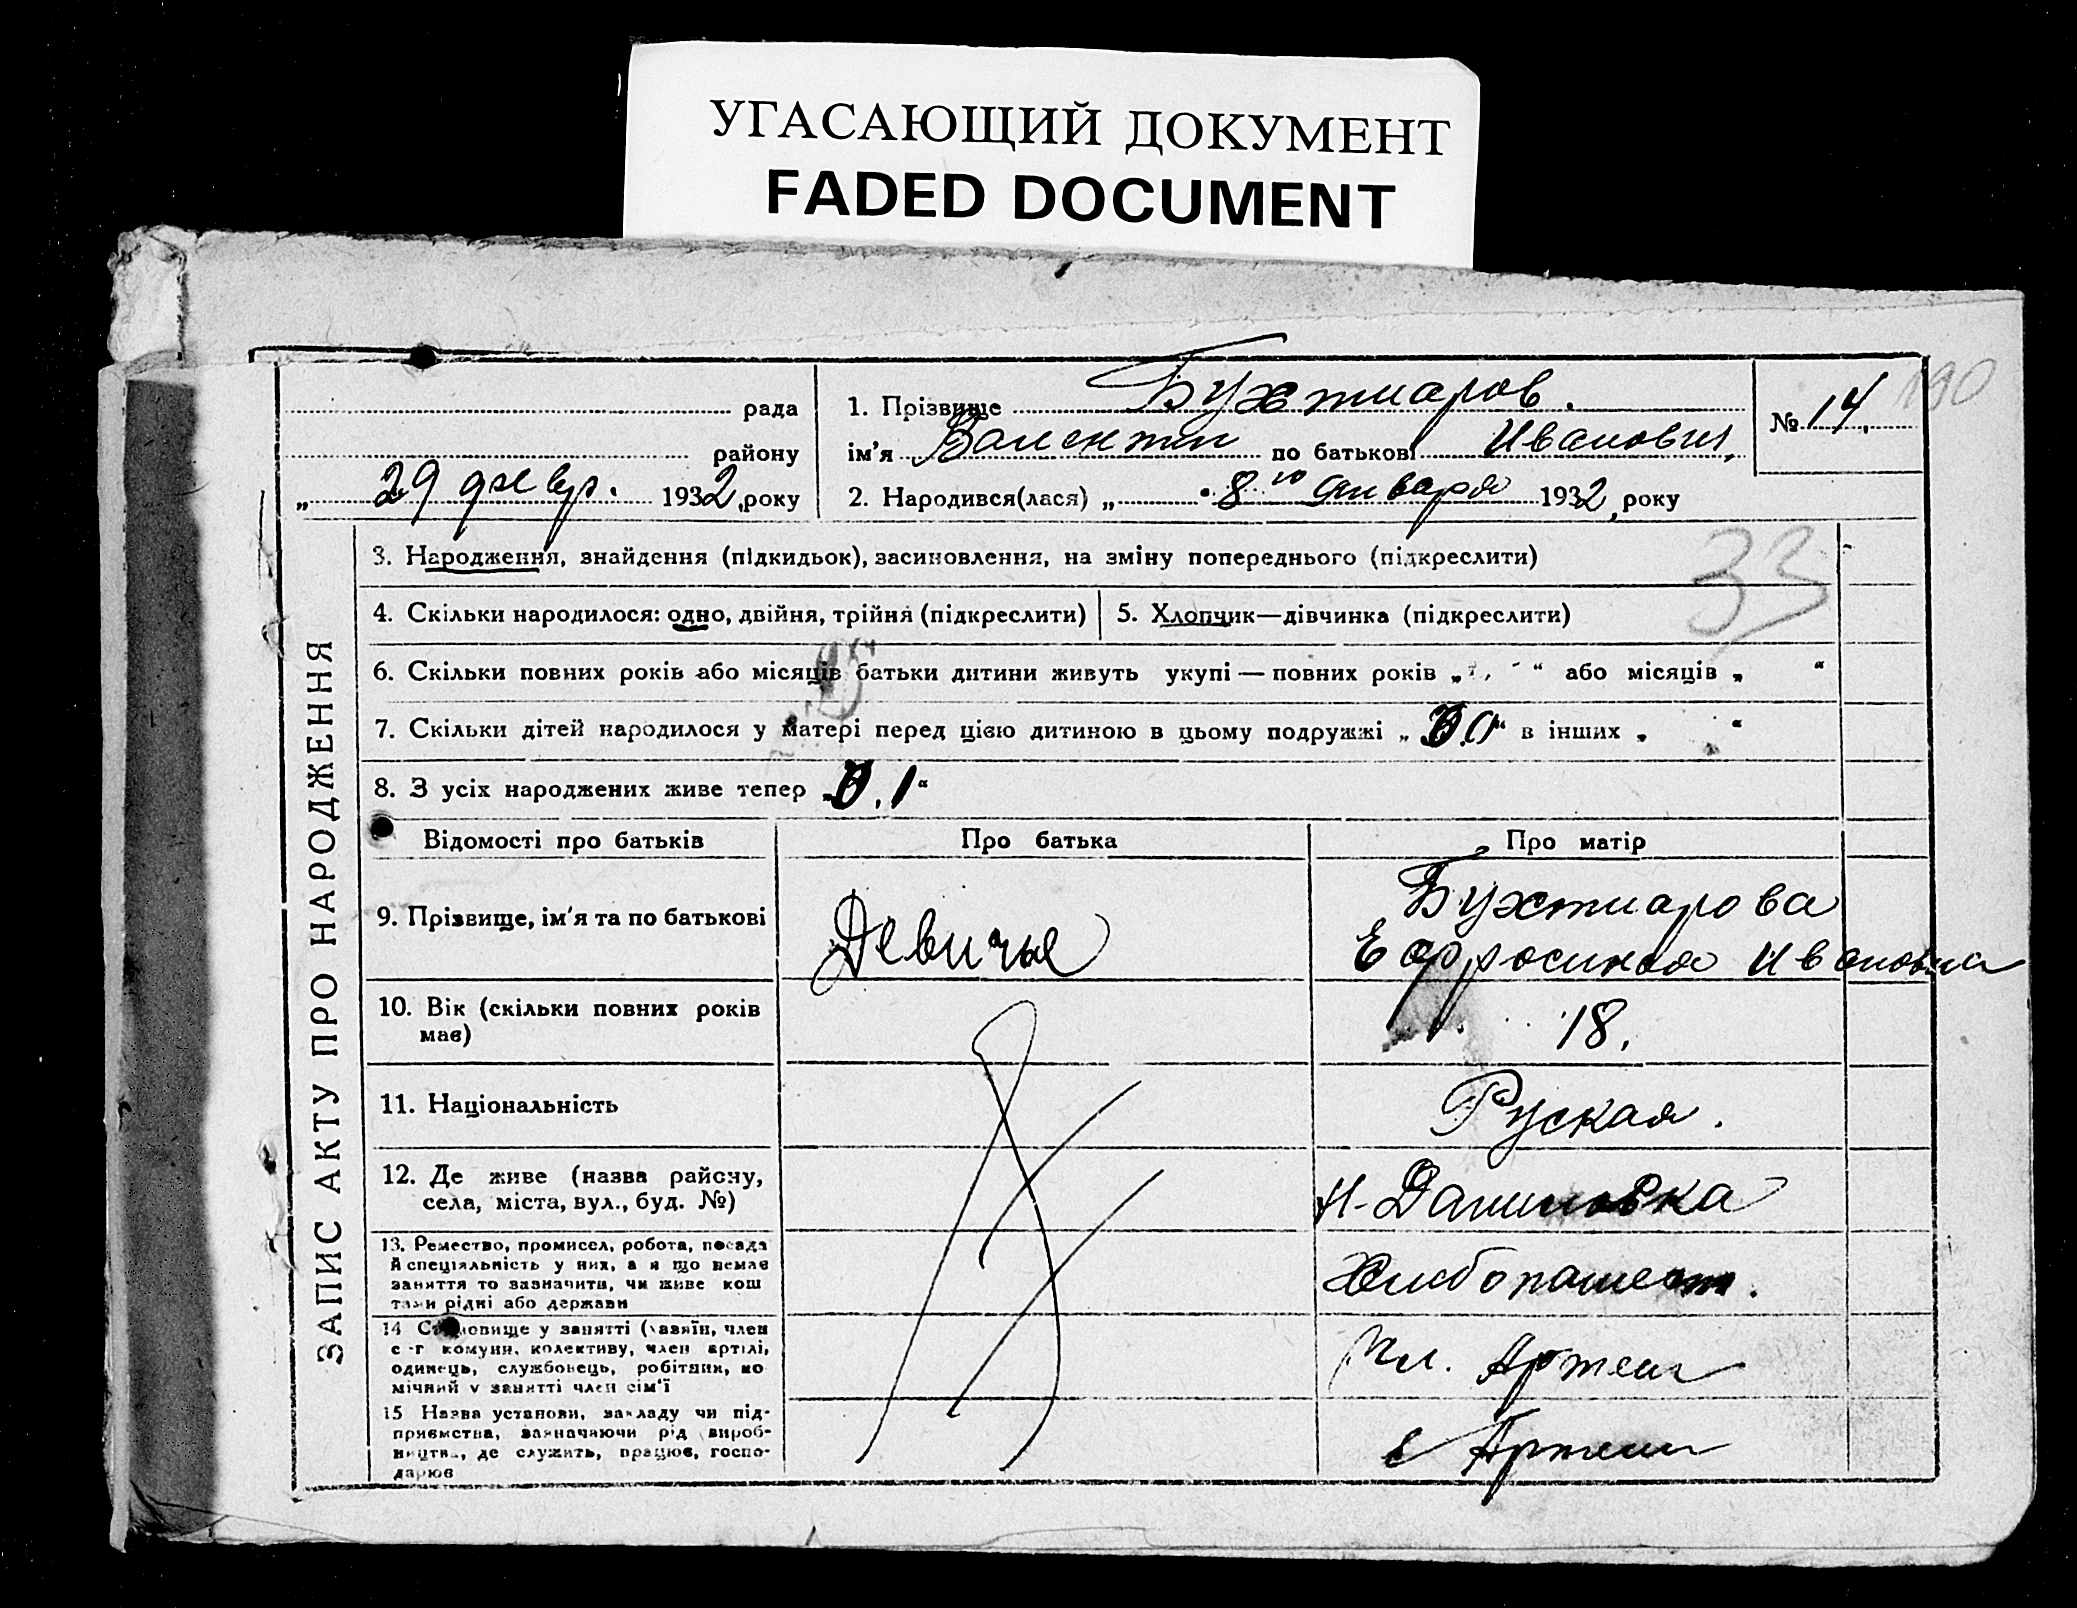 УГАСАЮЩИЙ ДОКУМЕНТ
FADED DOCUMENT
190
рада
району
„ 29 февр. 1932 року
1. Прізвище Бухтиаров.
ім'я Валентин по батькові Иванович,
2. Народився(лася) „ 8го января 1932, року
№ 14.
ЗАПИС АКТУ ПРО НАРОДЖЕННЯ
3. Народження, знайдення (підкидьок), засиновлення, на зміну попереднього (підкреслити)
33
4. Скільки народилося: одно, двійня, трійня (підкреслити)
5. Хлопчик—дівчинка (підкреслити)
6. Скільки повних років або місяців батьки дитини живуть укупі — повних років „ “ або місяців „ “
7. Скільки дітей народилося у матері перед цією дитиною в цьому подружжі „ “ в інших „ “
8. З усіх народжених живе тепер „ 1“
Відомості про батьків
Про батька
Про матір
9. Прізвище, ім'я та по батькові
Девичье
Бухтиарова
Ефросиния Ивановна
10. Вік (скільки повних років
має)
18.
11. Національність
Руская.
12. Де живе (назва району,
села, міста, вул., буд. №)
Н-Даниловка
13. Ремество, промисел, робота, посада
й спеціяльність у них, а я що немає
заняття то зазначити, чи живе кош
тами рідні або держави
Хлибопашест.
14 Становище у занятті (хазяїн, член
с-г комуни, колективу, член артілі,
одинець, службовець, робітник, по
мічний у занятті член сім'ї
Чл. Артели
15 Назва установи, закладу чи під-
приємства, зазначаючи рід вироб-
ництва, де служить, працює, госпо-
дарює
в Артели